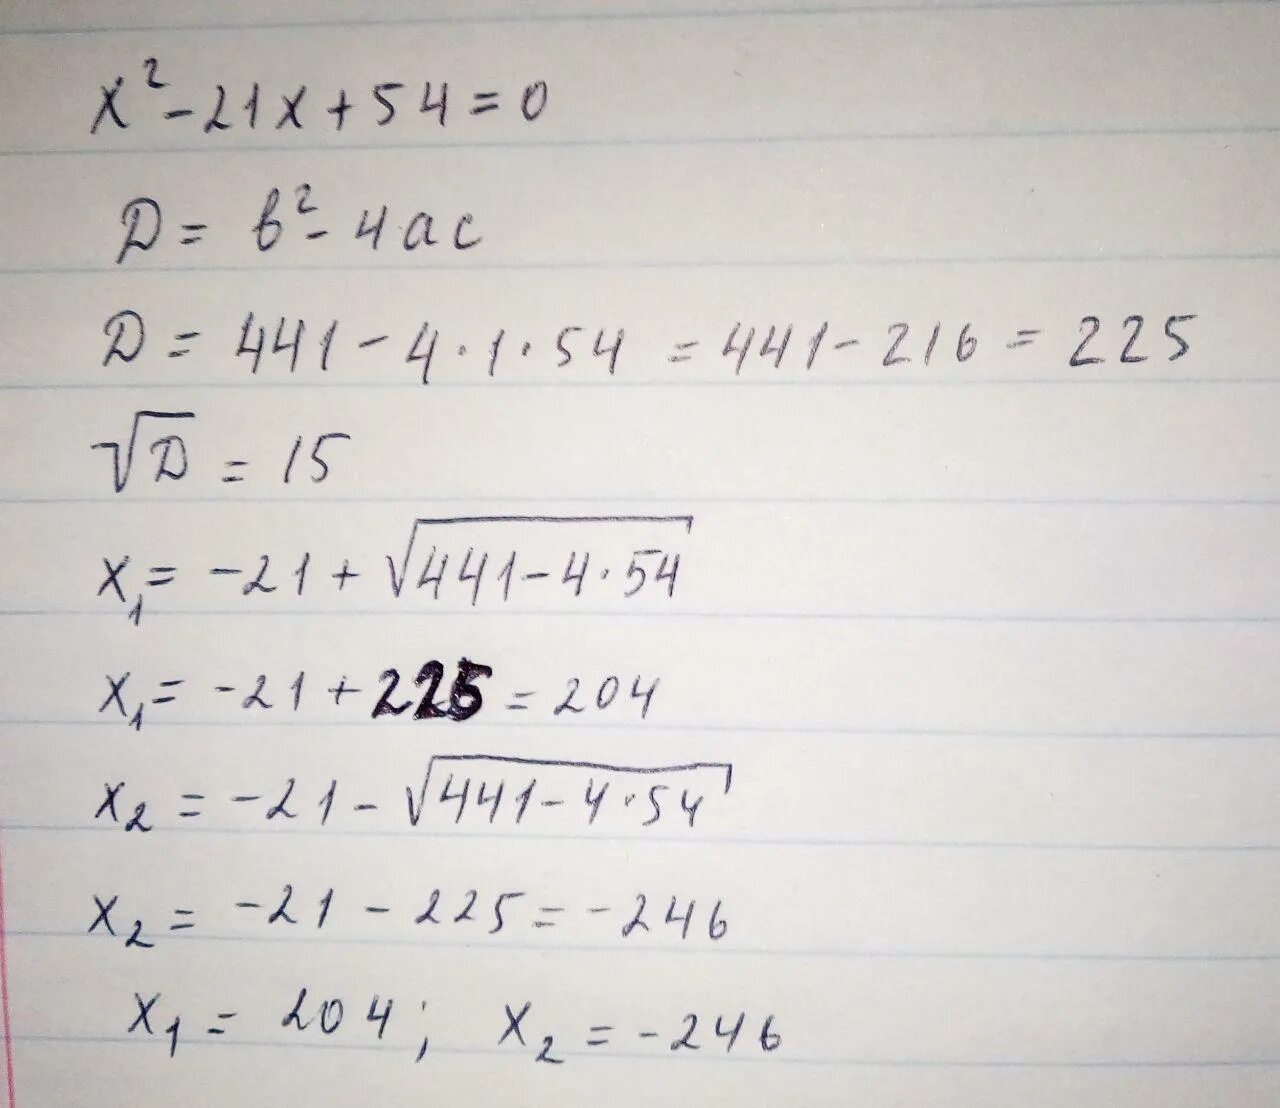 x² - 21x + 54 = 0
D = b² - 4ac
D = 441 - 4 · 1 · 54 = 441 - 216 = 225
√D = 15
x₁ = -21 + √441 - 4 · 54
x₁ = -21 + 225 = 204
x₂ = -21 - √441 - 4 · 54
x₂ = -21 - 225 = -246
x₁ = 204; x₂ = -246